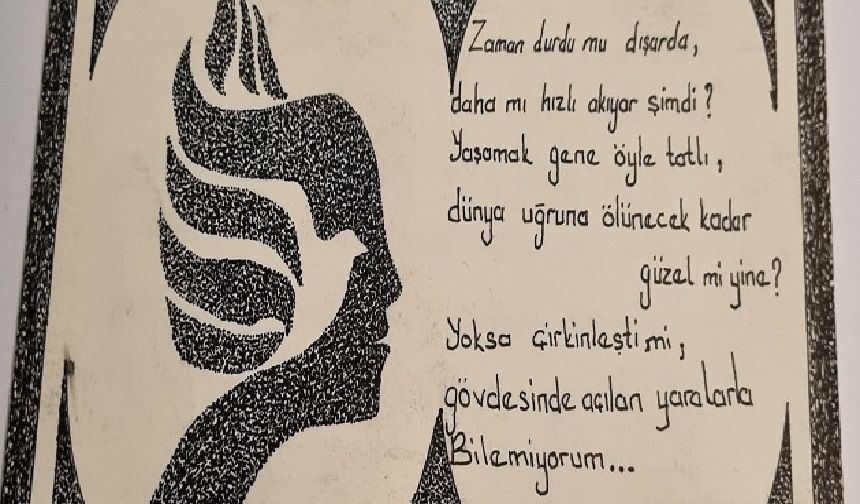 Zaman durdu mu dışarda,
daha mı hızlı akıyor şimdi?
Yaşamak gene öyle tatlı,
dünya uğruna ölünecek kadar
güzel mi yine?
Yoksa çirkinleşti mi,
gövdesinde açılan yaralarla
Bilemiyorum...